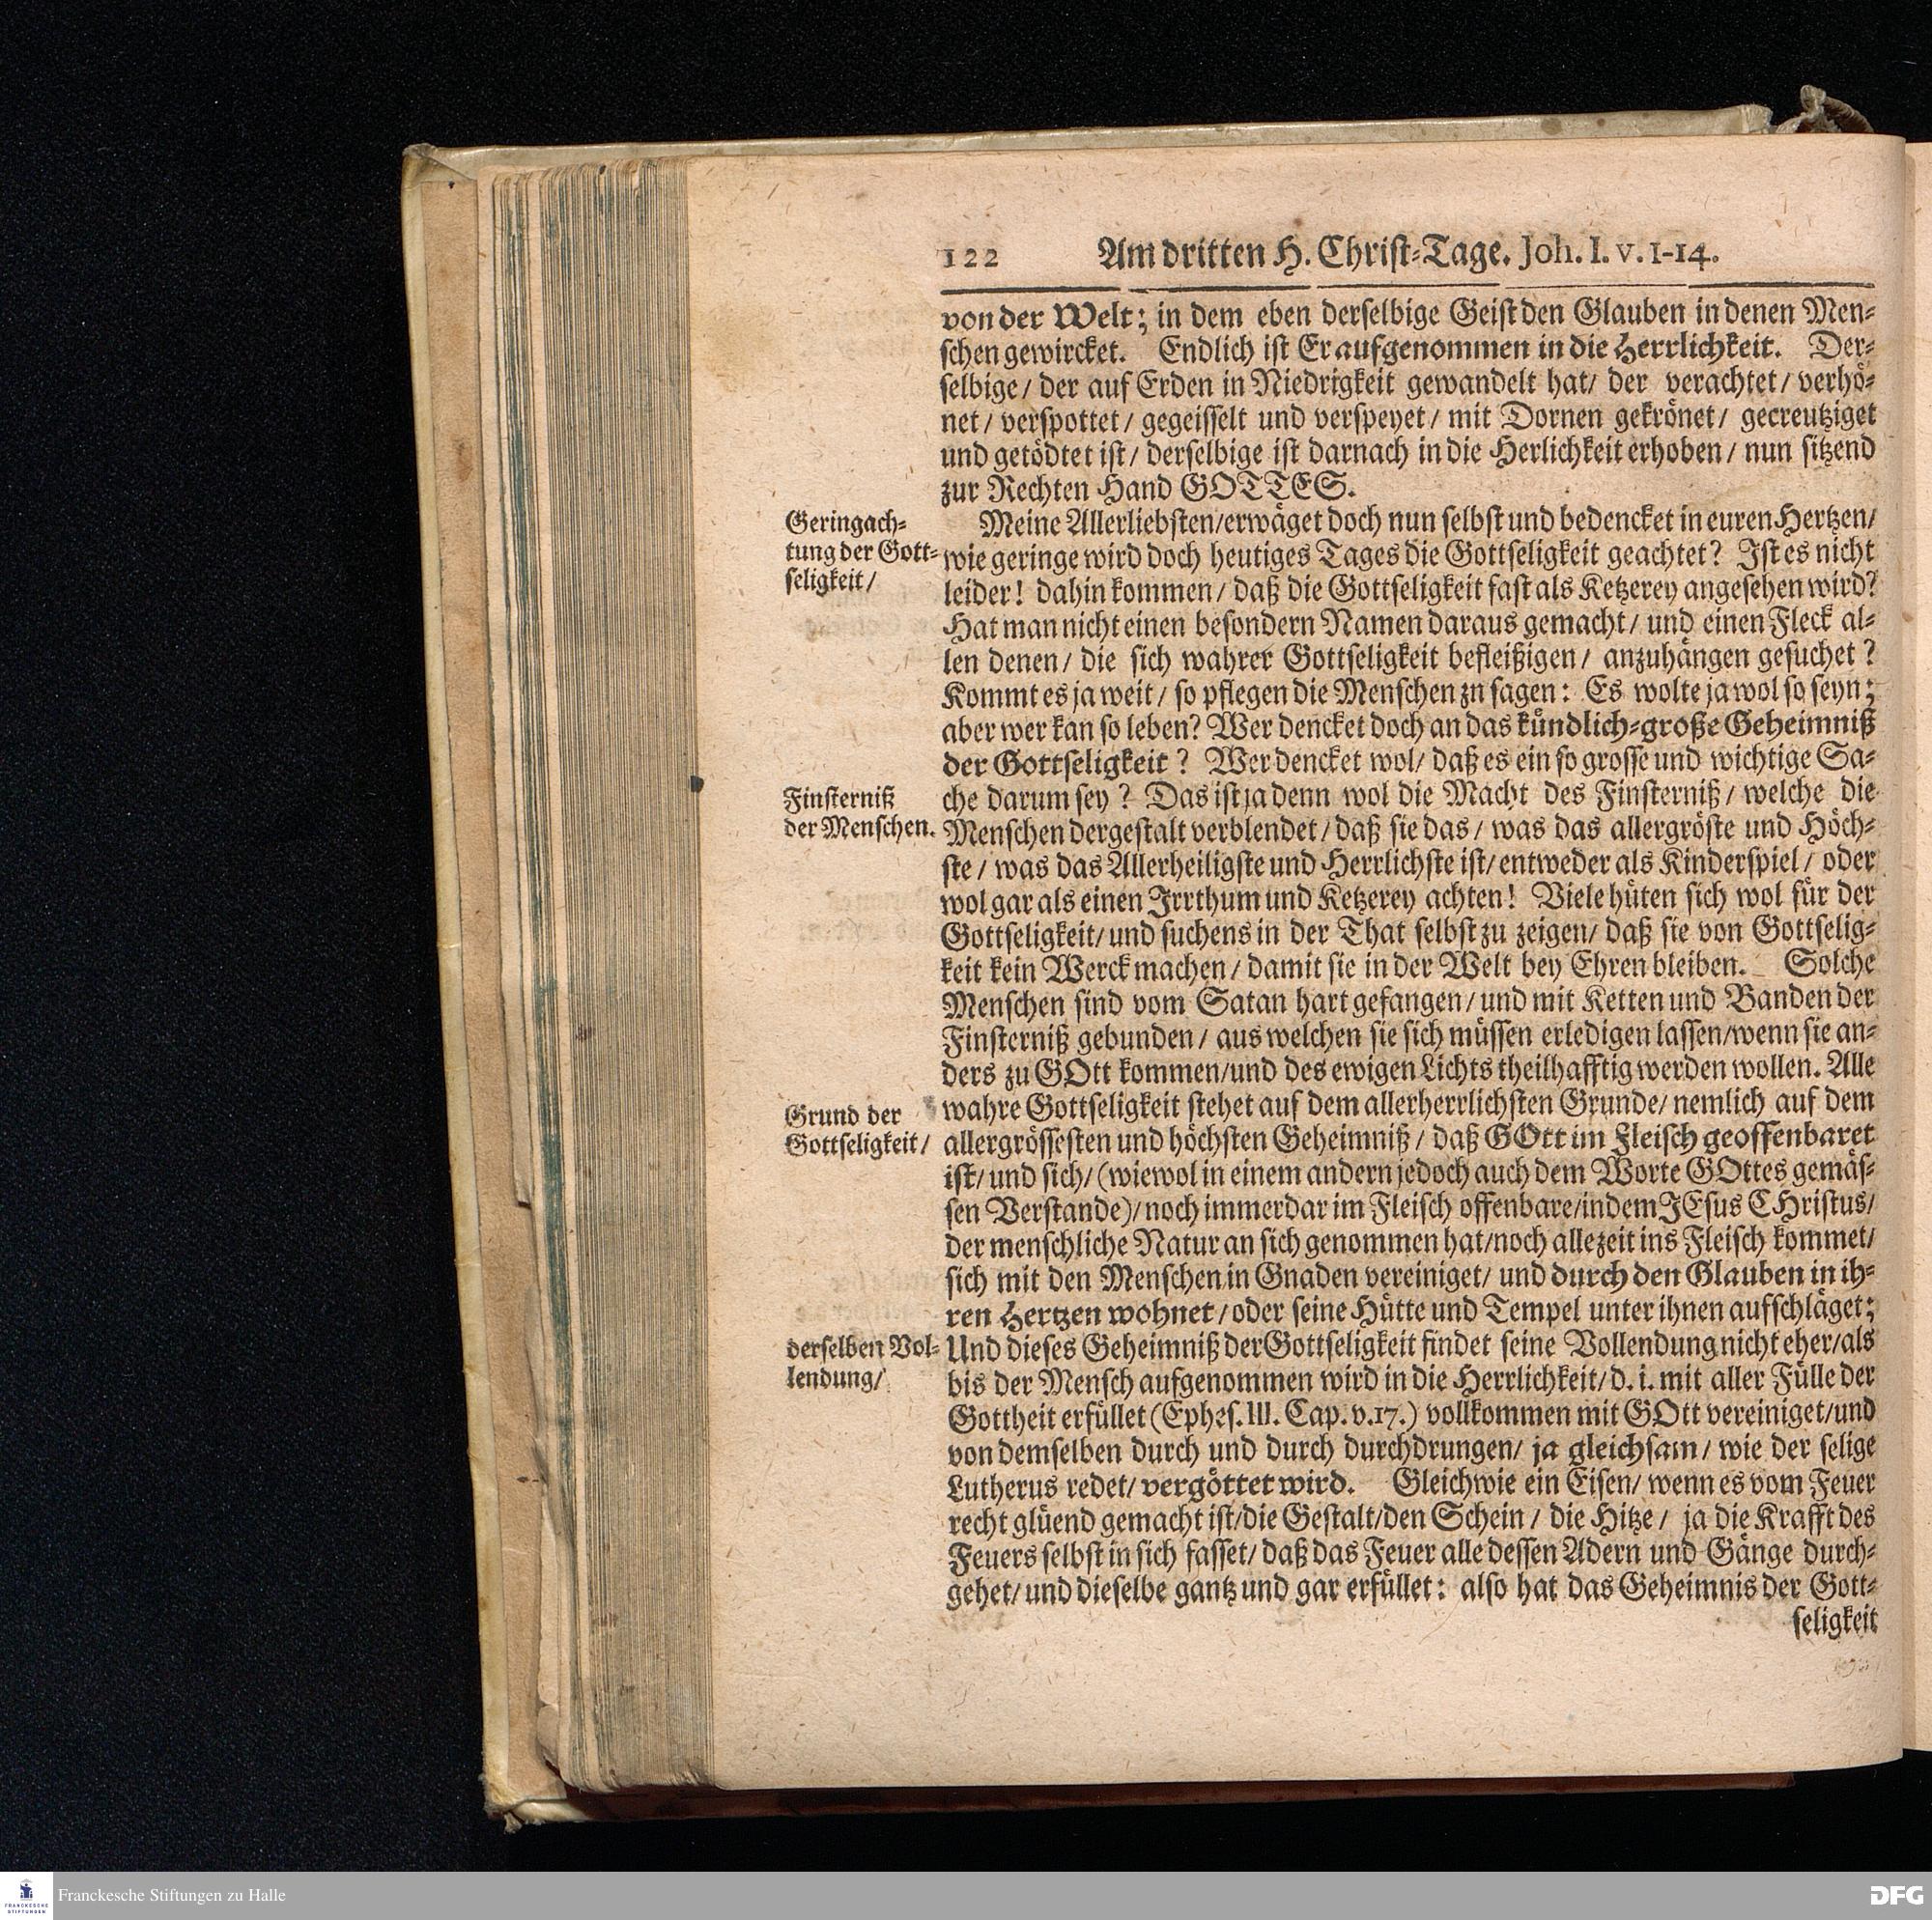 122 Am dritten H. Christ-Tage. Joh. I. v. 1-14.
von der Welt; in dem eben derselbige Geist den Glauben in denen Men-
schen gewircket. Endlich ist Er aufgenommen in die Herrlichkeit. Der-
selbige/ der auf Erden in Niedrigkeit gewandelt hat/ der verachtet/ verhö-
net/ verspottet/ gegeisselt und verspeyet/ mit Dornen gekrönet/ gecreutziget
und getödtet ist/ derselbige ist darnach in die Herlichkeit erhoben/ nun sitzend
zur Rechten Hand GOTTES.
Geringach-
tung der Gott-
seligkeit/
Meine Allerliebsten/erwäget doch nun selbst und bedencket in euren Hertzen/
wie geringe wird doch heutiges Tages die Gottseligkeit geachtet? Ist es nicht
leider! dahin kommen/ daß die Gottseligkeit fast als Ketzerey angesehen wird?
Hat man nicht einen besondern Namen daraus gemacht/ und einen Fleck al-
len denen/ die sich wahrer Gottseligkeit befleißigen/ anzuhängen gesuchet?
Kommt es ja weit/ so pflegen die Menschen zn sagen: Es wolte ja wol so seyn;
aber wer kan so leben? Wer dencket doch an das kündlich-große Geheimniß
der Gottseligkeit? Wer dencket wol/ daß es ein so grosse und wichtige Sa-
Finsterniß
der Menschen.
che darum sey? Das ist ja denn wol die Macht des Finsterniß/ welche die
Menschen dergestalt verblendet/ daß sie das/ was das allergröste und Höch-
ste/ was das Allerheiligste und Herrlichste ist/ entweder als Kinderspiel/ oder
wol gar als einen Irrthum und Ketzerey achten! Viele hüten sich wol für der
Gottseligkeit/ und suchens in der That selbst zu zeigen/ daß sie von Gottselig-
keit kein Werck machen/ damit sie in der Welt bey Ehren bleiben. Solche
Menschen sind vom Satan hart gefangen/ und mit Ketten und Banden der
Finsterniß gebunden/ aus welchen sie sich müssen erledigen lassen/wenn sie an-
ders zu GOtt kommen/und des ewigen Lichts theilhafftig werden wollen. Alle
Grund der
Gottseligkeit/
wahre Gottseligkeit stehet auf dem allerherrlichsten Grunde/ nemlich auf dem
allergrössesten und höchsten Geheimniß/ daß GOtt im Fleisch geoffenbaret
ist/ und sich/ (wiewol in einem andern jedoch auch dem Worte GOttes gemäs-
sen Verstande)/ noch immerdar im Fleisch offenbare/indem JEsus CHristus/
der menschliche Natur an sich genommen hat/noch allezeit ins Fleisch kommet/
sich mit den Menschen in Gnaden vereiniget/ und durch den Glauben in ih-
ren Hertzen wohnet/ oder seine Hütte und Tempel unter ihnen aufschläget;
derselben Vol-
lendung/
Und dieses Geheimniß der Gottseligkeit findet seine Vollendung nicht eher/als
bis der Mensch aufgenommen wird in die Herrlichkeit/ d. i. mit aller Fülle der
Gottheit erfüllet (Ephes. III. Cap. v. 17.) vollkommen mit GOtt vereiniget/und
von demselben durch und durch durchdrungen/ ja gleichsam/ wie der selige
Lutherus redet/ vergöttet wird. Gleichwie ein Eisen/ wenn es vom Feuer
recht glüend gemacht ist/die Gestalt/den Schein/ die Hitze/ ja die Krafft des
Feuers selbst in sich fasset/ daß das Feuer alle dessen Adern und Gänge durch-
gehet/ und dieselbe gantz und gar erfüllet: also hat das Geheimnis der Gott-
seligkeit
FRANCKESCHE
STIFTUNGEN
Franckesche Stiftungen zu Halle
DFG